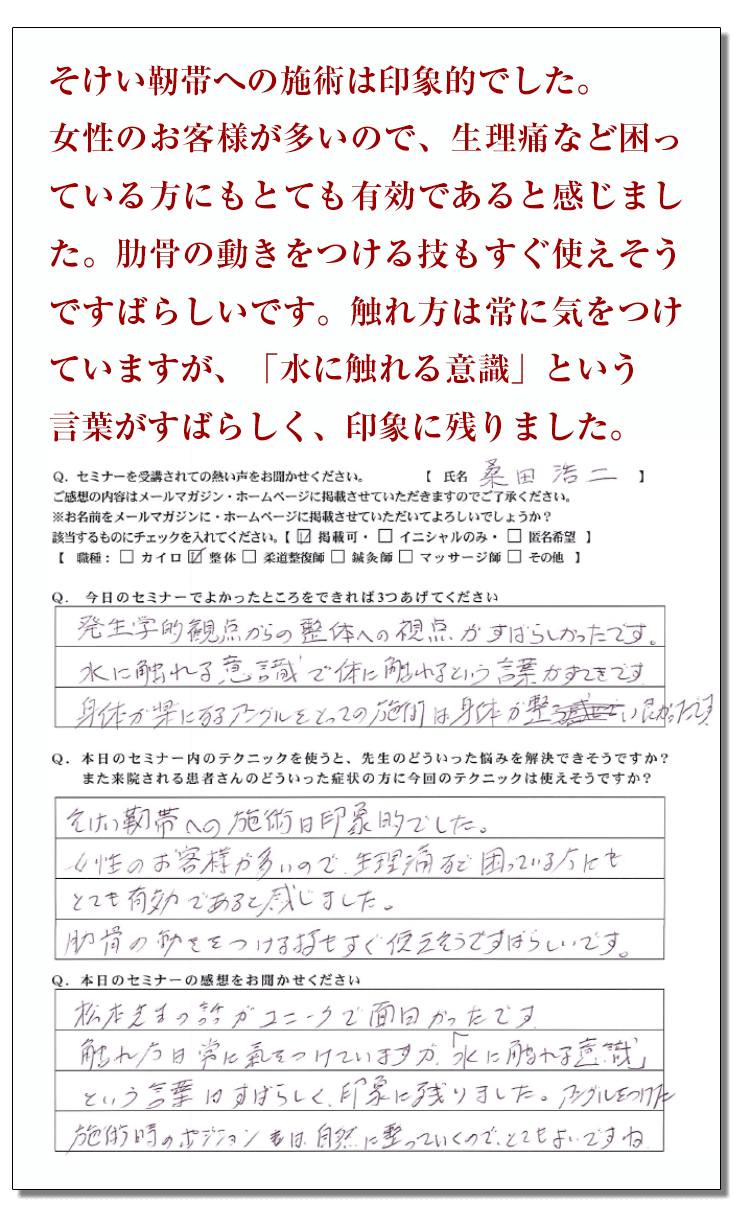 そけい靭帯への施術は印象的でした。
女性のお客様が多いので、生理痛など困っ
ている方にもとても有効であると感じまし
た。肋骨の動きをつける技もすぐ使えそう
ですばらしいです。触れ方は常に気をつけ
ていますが、「水に触れる意識」という
言葉がすばらしく、印象に残りました。
Q. セミナーを受講されての熱い声をお聞かせください。 【 氏名 桑田浩二 】
ご感想の内容はメールマガジン・ホームページに掲載させていただきますのでご了承ください。
※お名前をメールマガジンに・ホームページに掲載させていただいてよろしいでしょうか？
該当するものにチェックを入れてください。【 ☑ 掲載可・ □ イニシャルのみ・ □ 匿名希望 】
【 職種： □ カイロ ☑ 整体 □ 柔道整復師 □ 鍼灸師 □ マッサージ師 □ その他 】
Q. 今日のセミナーでよかったところをできれば3つあげてください
発生学的観点からの整体への視点がすばらしかったです。
水に触れる意識で体に触れるという言葉がすてきです
身体が楽になるアングルをとっての施術は身体が整い良かったです
Q. 本日のセミナー内のテクニックを使うと、先生のどういった悩みを解決できそうですか？
また来院される患者さんのどういった症状の方に今回のテクニックは使えそうですか？
そけい靭帯への施術は印象的でした。
女性のお客様が多いので、生理痛など困っている方にも
とても有効であると感じました。
肋骨の動きをつける技もすぐ使えそうですばらしいです。
Q. 本日のセミナーの感想をお聞かせください
松本先生の話がユニークで面白かったです
触れ方は常に氣をつけていますが、「水に触れる意識」
という言葉はすばらしく、印象に残りました。アングルをつけた
施術時のポジションは、自然に整っていくので、とてもよいですね